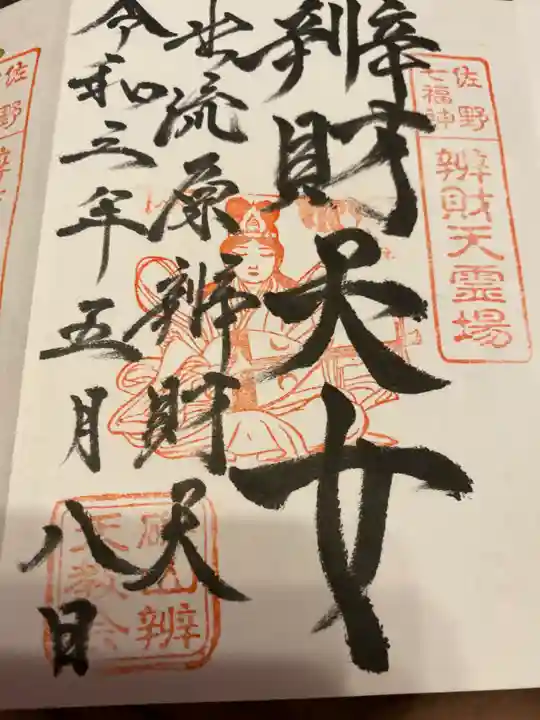 佐野
七福神
辨財天霊場
辨財天女
出流原辨財天
令和三年五月八日
佐野